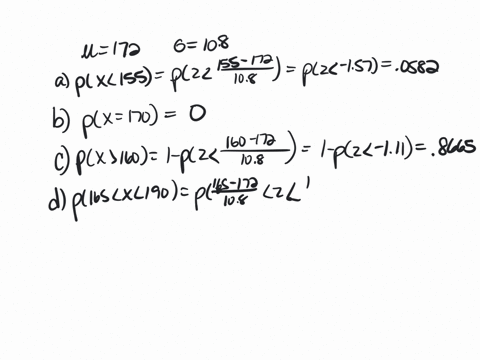 μ=172 σ=10.8
a) p(x<155) = p(z< (155-172)/10.8) = p(z<-1.57) = .0582
b) p(x=170) = 0
c) p(x>160) = 1-p(z< (160-172)/10.8) = 1-p(z<-1.11) = .8665
d) p(165<x<190) = p((165-172)/10.8 <z< 1